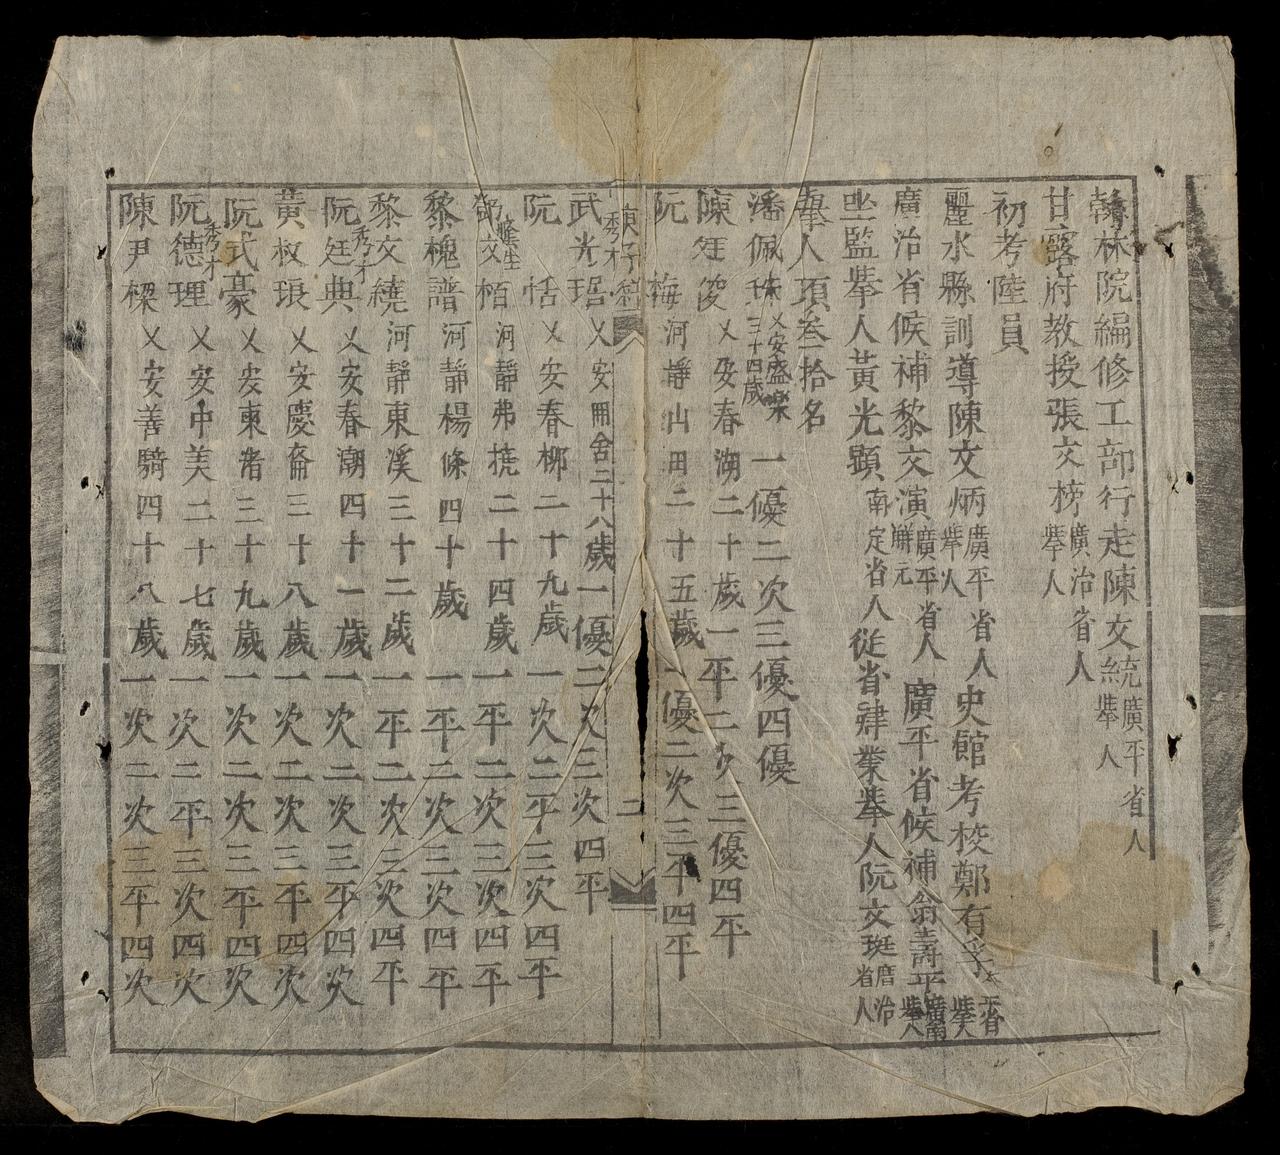 翰林院編修工部行走陳文統廣平省人舉人
甘露府教授張文榜廣治省人舉人
初考陸員
麗水縣訓導陳文炳廣平省人舉人史館考校鄭有孚平省舉人
廣治省候補黎文演廣平省人解元廣平省候補翁壽平廣南舉人
坐監舉人黃光顯南定省人從省肄業舉人阮文珽廣治省人
舉人項叁拾名
潘佩珠乂安盛樂三十四歲一優二次三優四優
陳廷俊乂安春湖二十歲一平二次三優四平
阮梅河靜山田二十五歲一優二次三平四平
庚子
二
武光琚秀才乂安冊舍二十八歲一優二次三次四平
阮恬乂安春柳二十九歲一次二平三次四平
鄧文栢蔭生河靜弗撓二十四歲一平二次三次四平
黎槐譜河靜楊條四十歲一平二次三次四平
黎文繞河靜東溪三十二歲一平二次三次四平
阮廷典秀才乂安春潮四十一歲一次二次三平四次
黃叔琅乂安慶裔三十八歲一次二次三平四次
阮式豪乂安東渚三十九歲一次二次三平四次
阮德理秀才乂安中美二十七歲一次二平三次四次
陳尹樑乂安善騎四十八歲一次二次三平四次